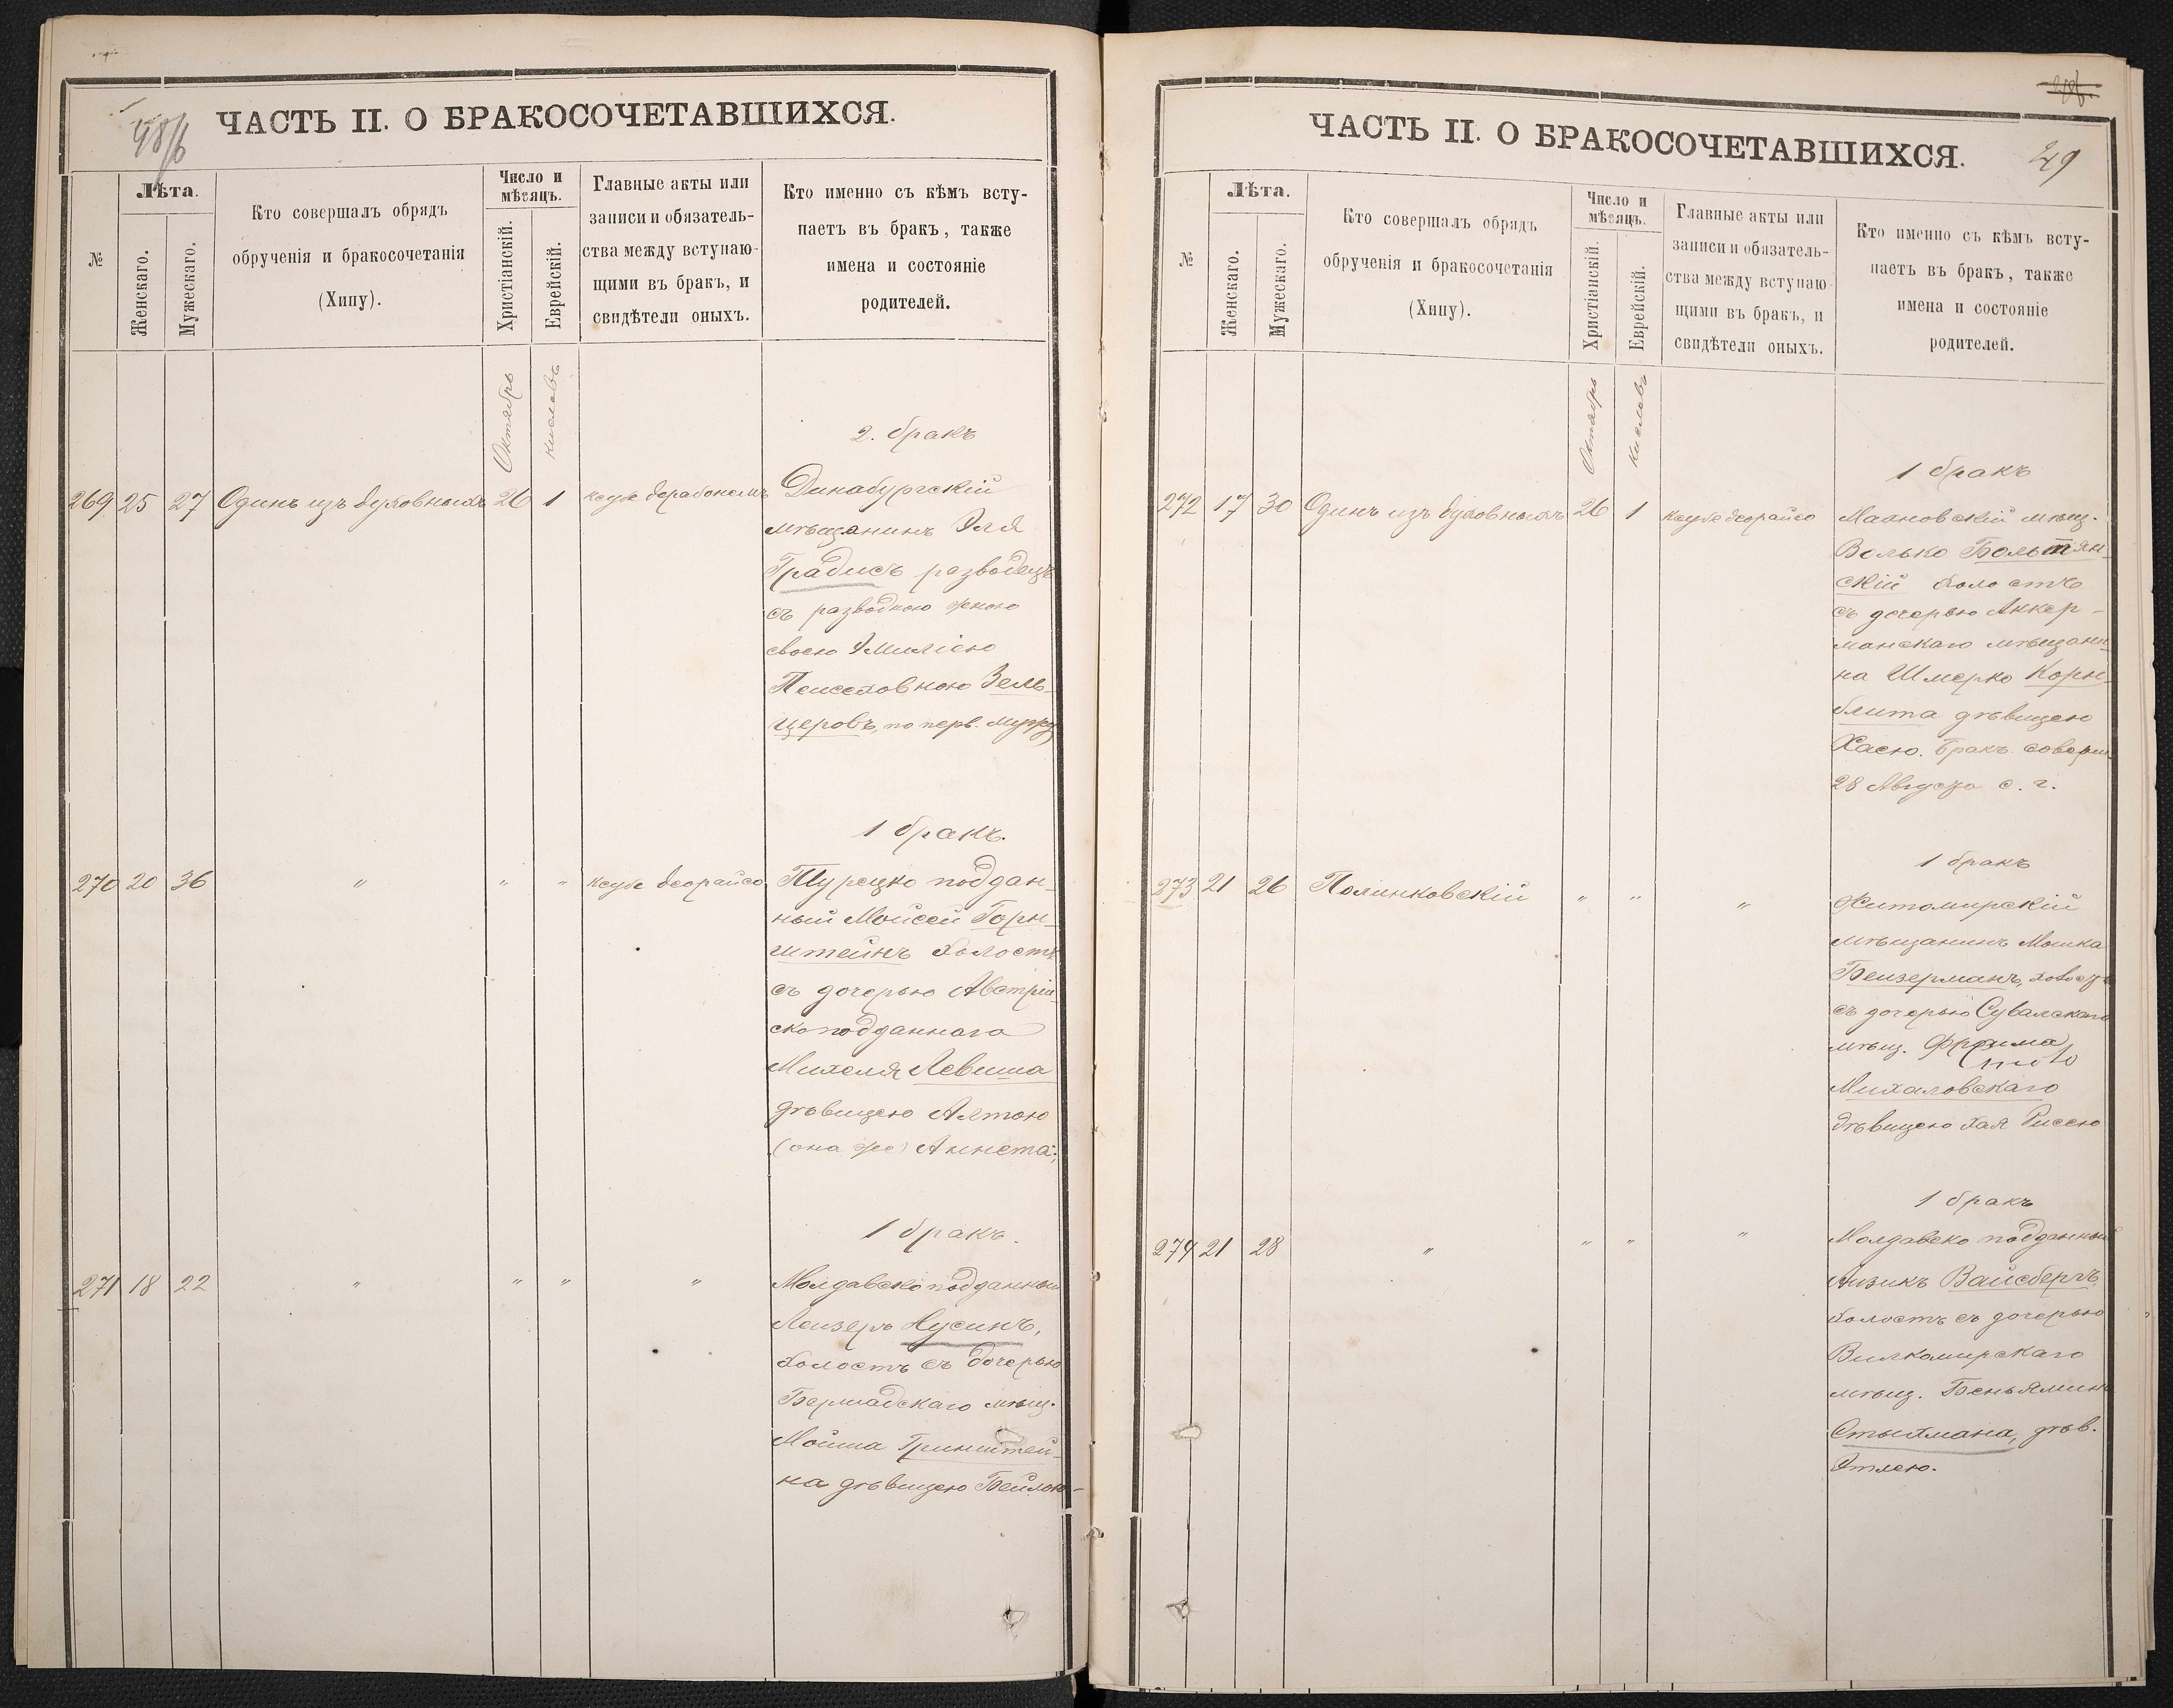 48/б
ЧАСТЬ II. О БРАКОСОЧЕТАВШИХСЯ.
№
Лѣта.
Женскаго.
Мужескаго.
Кто совершалъ обрядъ
обрученія и бракосочетанія
(Хипу).
Число и
мѣсяцъ.
Христіанскій.
Еврейскій.
Главные акты или
записи и обязатель-
ства между вступаю-
щими въ бракъ, и
свидѣтели оныхъ.
Кто именно съ кѣмъ всту-
паетъ въ бракъ, также
имена и состояніе
родителей.
Октябрь
Кислевъ
2. бракъ
269 25 27 Одинъ изъ духовныхъ 26 1 ксубе дерабонемъ Динабургскій
мѣщанинъ Эля
Градисъ разводецъ
съ разводною женою
своею Эмиліею
Пейсеховною Зель-
церовъ, по перв. мужу
1 бракъ.
270 20 36 " " " ксубе деорайсо Турецко поддан-
ный Мойсей Горн-
штейнъ холостъ
съ дочерью Австрій-
скоподданнаго
Михеля Левиша
дѣвицею Алтою
(она же) Аннета;
1 бракъ.
271 18 22 " " " " Молдавско подданный
Лейзеръ Нусинъ,
холостъ съ дочерью
Бершадскаго мѣщ.
Мойша Гринштей-
на дѣвицею Бейлою-
ЧАСТЬ II. О БРАКОСОЧЕТАВШИХСЯ.
49
№
Лѣта.
Женскаго.
Мужескаго.
Кто совершалъ обрядъ
обрученія и бракосочетанія
(Хипу).
Число и
мѣсяцъ.
Христіанскій.
Еврейскій.
Главные акты или
записи и обязатель-
ства между вступаю-
щими въ бракъ, и
свидѣтели оныхъ.
Кто именно съ кѣмъ всту-
паетъ въ бракъ, также
имена и состояніе
родителей.
Октябрь
Кислевъ
1 бракъ
272 17 30 Одинъ изъ духовныхъ 26 1 ксубе деорайсо Махновскій мѣщ.
Волько Болтян-
скій холостъ
съ дочерью Аккер-
манскаго мѣщани-
на Шмерко Корн-
блита дѣвицею
Хасею. Бракъ соверш.
28 Августа с. г.
1 бракъ
273 21 26 Полинковскій " " " Житомирскій
мѣщанинъ Мошка
Бейзерманъ, холостъ
съ дочерью Сувалскаго
мѣщ. Фроима
Михаловскаго
дѣвицею Хая Риссею
1 бракъ
274 21 28 " " " " Молдавско подданный
Айзикъ Вайсбергъ
холостъ съ дочерью
Вилкомирскаго
мѣщ. Беньямин
Стыкмана, дѣв.
Этлею.